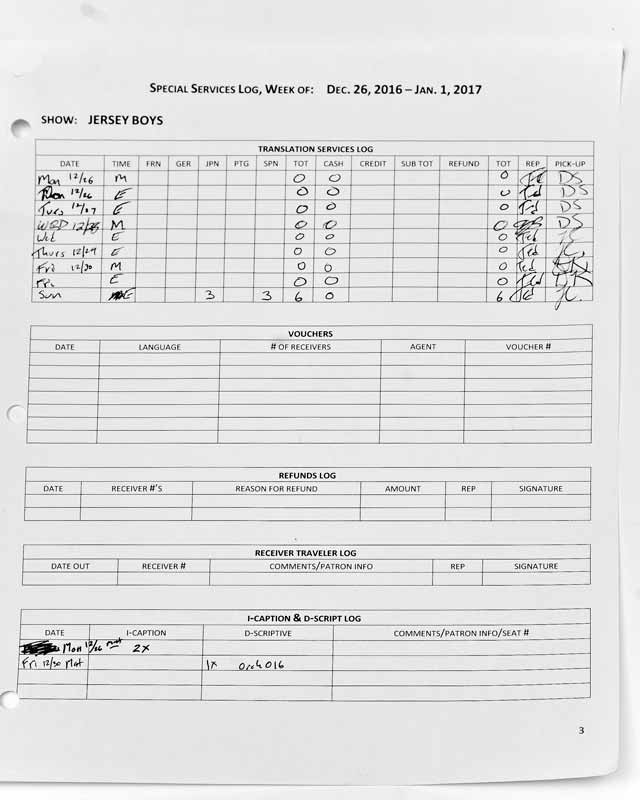 SPECIAL SERVICES LOG, WEEK OF: DEC. 26, 2016 – JAN. 1, 2017
SHOW: JERSEY BOYS
TRANSLATION SERVICES LOG
DATE TIME FRN GER JPN PTG SPN TOT CASH CREDIT SUB TOT REFUND TOT REP PICK-UP
Mon 12/26 M 0 0 0 Ted DS
Mon 12/26 E 0 0 0 Ted DS
Tues 12/27 E 0 0 0 Ted DS
WED 12/28 M 0 0 0 DS
Wed E 0 0 0 Ted JC
Thurs 12/29 E 0 0 0 Ted JC
Fri 12/30 M 0 0 0 Ted
Fri E 0 0 0 Ted
Sun E 3 3 6 0 6 Ted JC
VOUCHERS
DATE LANGUAGE # OF RECEIVERS AGENT VOUCHER #
REFUNDS LOG
DATE RECEIVER #'S REASON FOR REFUND AMOUNT REP SIGNATURE
RECEIVER TRAVELER LOG
DATE OUT RECEIVER # COMMENTS/PATRON INFO REP SIGNATURE
I-CAPTION & D-SCRIPT LOG
DATE I-CAPTION D-SCRIPTIVE COMMENTS/PATRON INFO/SEAT #
Mon 12/26 mat 2x
Fri 12/30 Mat 1x Orch O16
3